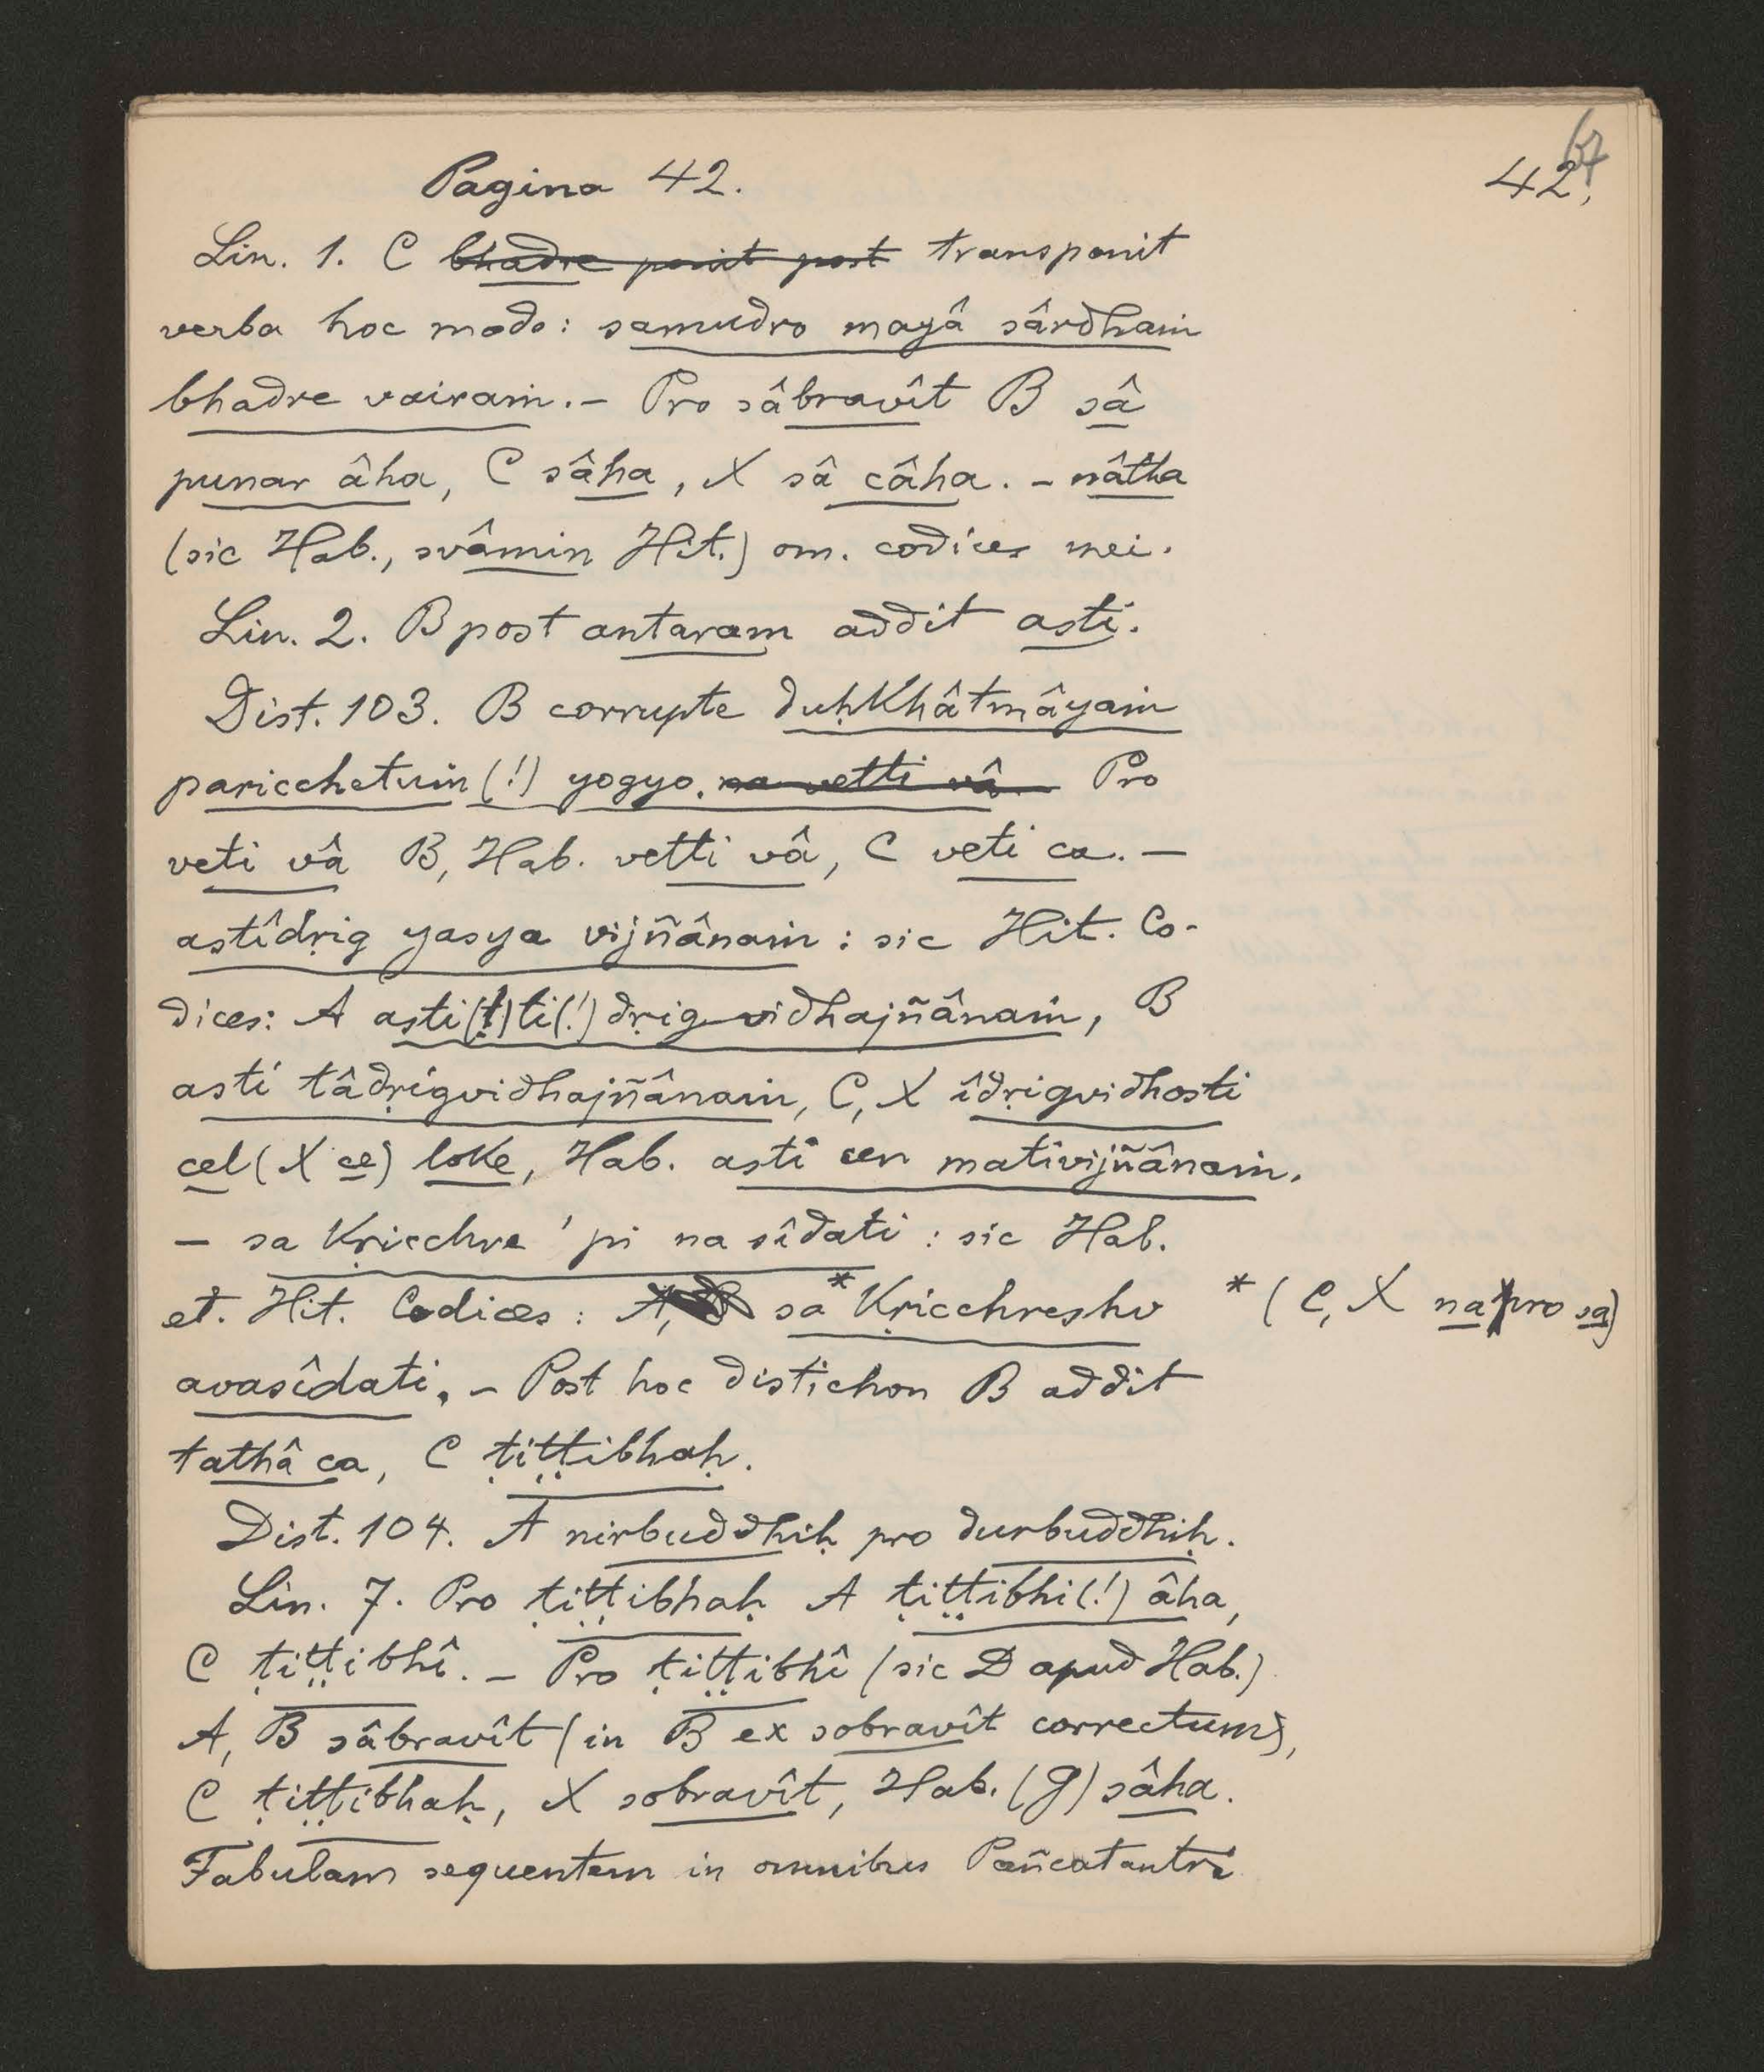 67
Pagina 42.
42.
Lin. 1. C bhadre ponit post transponit
verba hoc modo: samudro mayâ sârdhaṁ
bhadre vairaṁ. – Pro sâbravît B sâ
punar âha, C sâha, X sâ câha. – nâtha
(sic Hab., svâmin Hit.) om. codices mei.
Lin. 2. B post antaram addit asti.
Dist. 103. B corrupte duḥkhâtmâyaṁ
paricchetuṁ (!) yogyo. na vetti vâ. Pro
veti vâ B, Hab. vetti vâ, C veti ca. –
astîdṛig yasya vijñânaṁ : sic Hit. Co-
dices: A asti(!)ti(!)dṛig vidhajñânaṁ, B
asti tâdṛigvidhajñânaṁ, C, X îdṛigvidhosti
cel (X ce) loke, Hab. asti cen mativijñânaṁ.
– sa kṛicchre 'pi na sîdati : sic Hab.
et. Hit. Codices : A, B sa* kṛicchreshv
* (C, X na pro sa)
avasîdati. – Post hoc distichon B addit
tathâ ca, C ṭiṭṭibhaḥ.
Dist. 104. A nirbuddhiḥ pro durbuddhiḥ.
Lin. 7. Pro ṭiṭṭibhaḥ A ṭiṭṭibhi(!) âha,
C ṭiṭṭibhî. – Pro ṭiṭṭibhî (sic D apud Hab.)
A, B sâbravît (in B ex sobravît correctum),
C ṭiṭṭibhaḥ, X sobravît, Hab. (g) sâha.
Fabulam sequentem in omnibus Pañcatantri